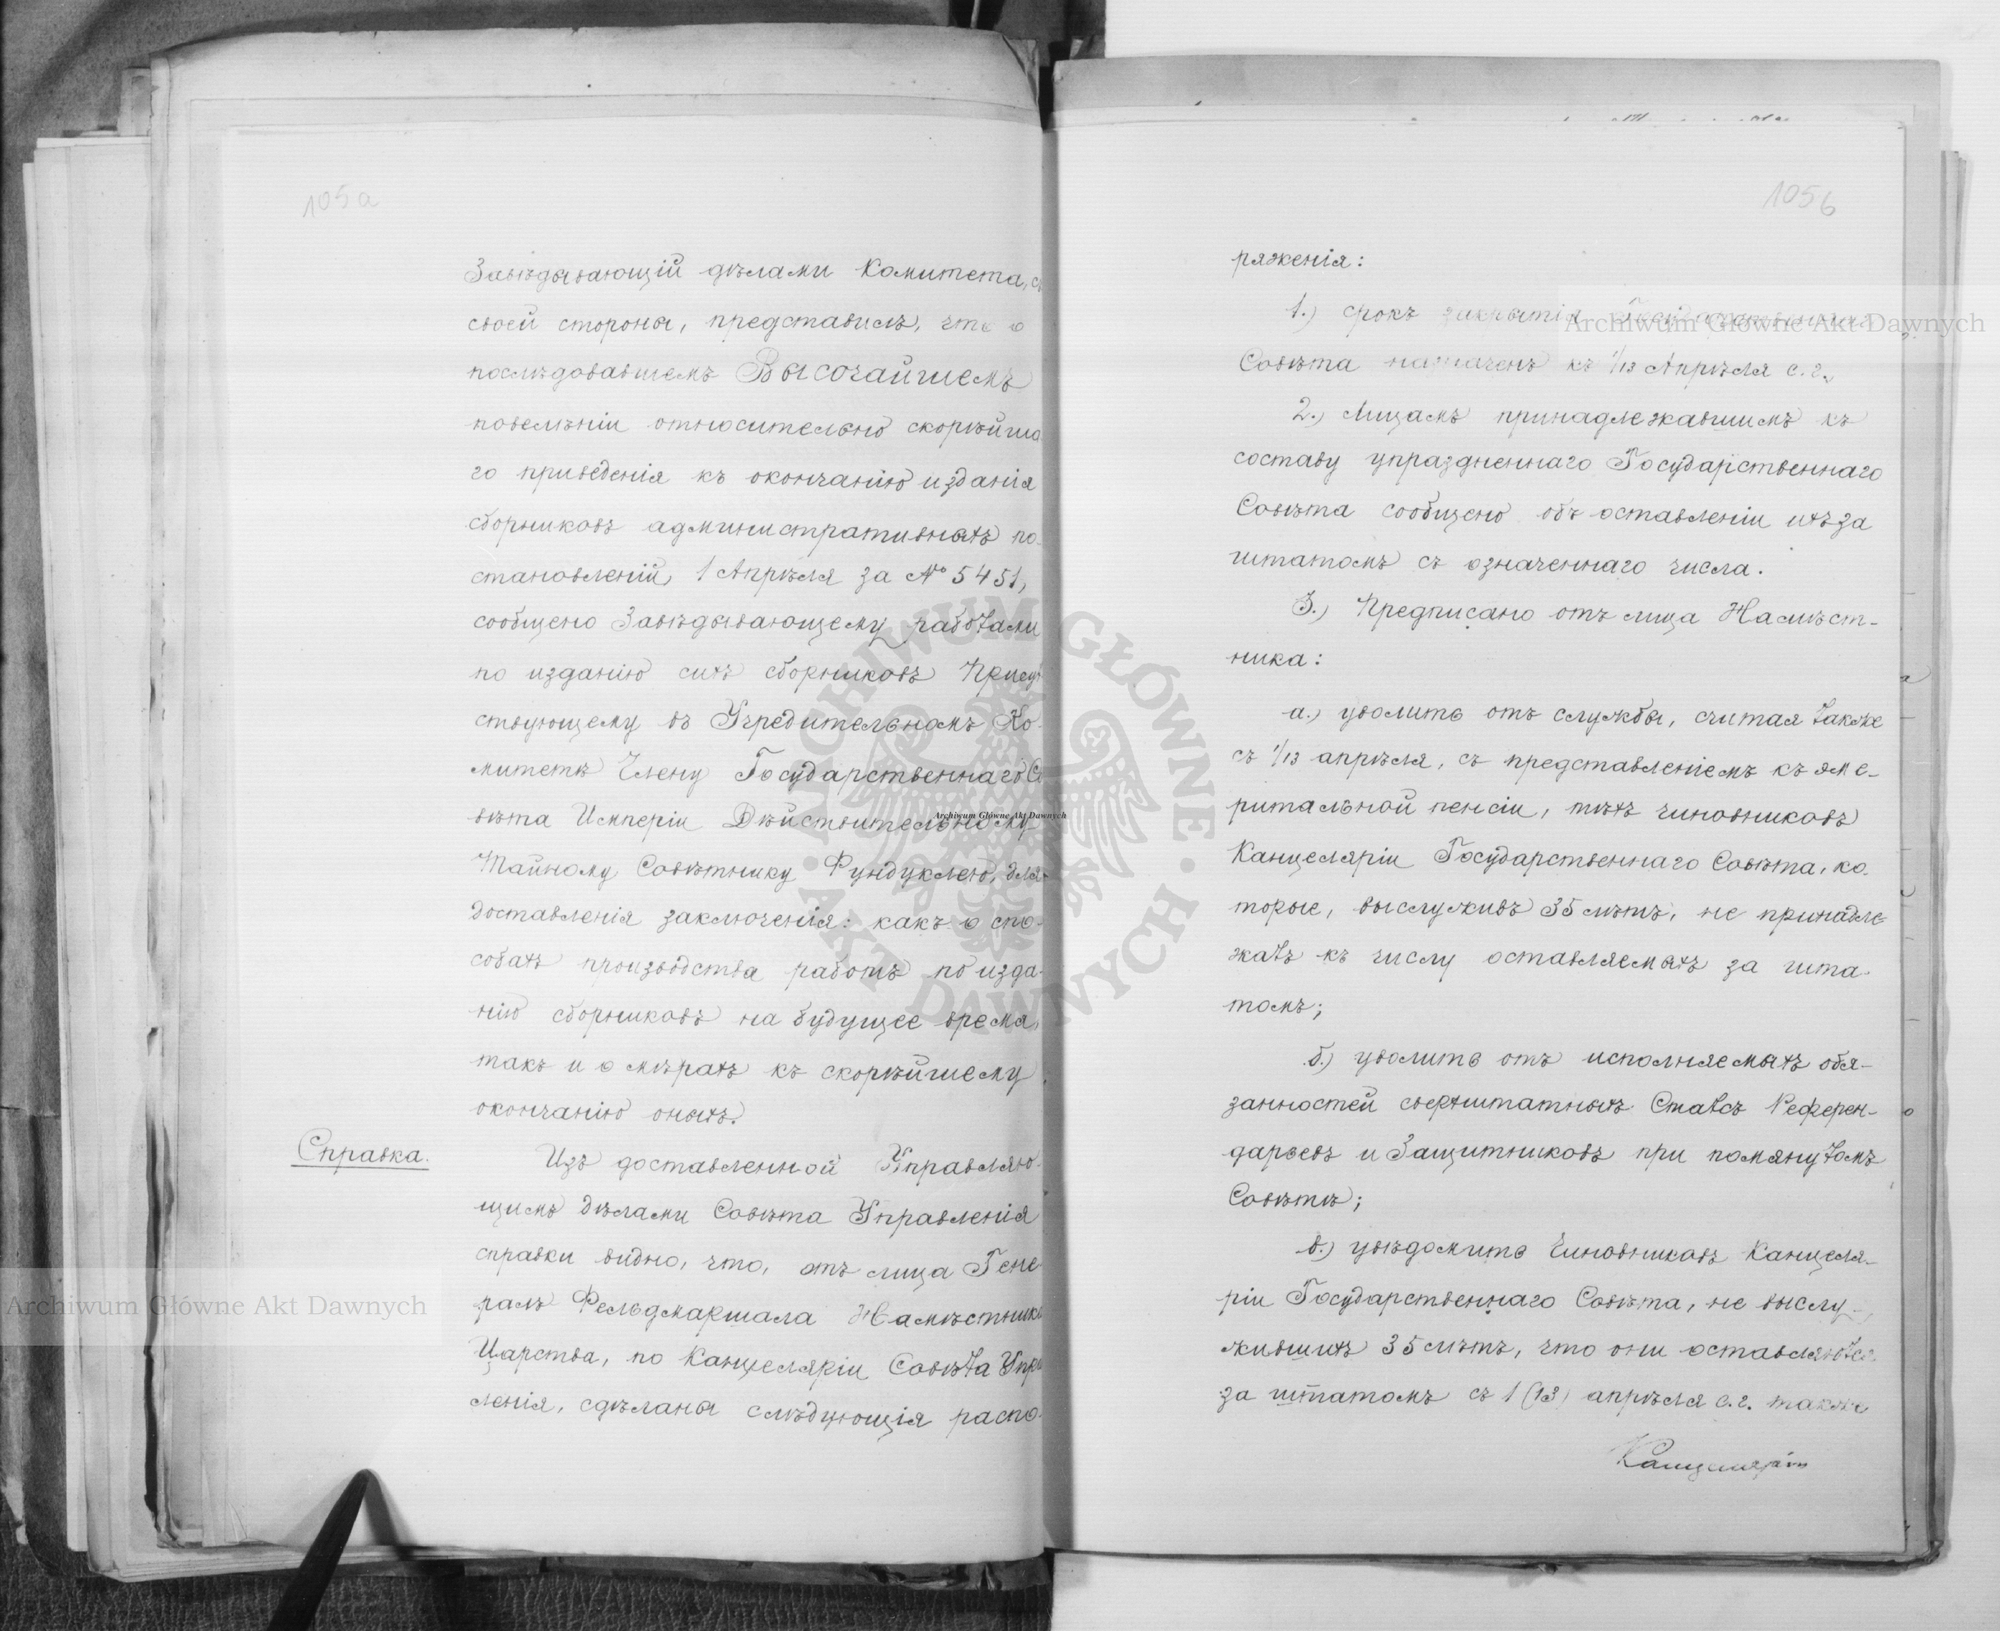 105а
Завѣдывающій дѣлами Комитета, съ
своей стороны, представилъ, что о
послѣдовавшемъ Высочайшемъ
повелѣніи относительно скорѣйша
го приведенія къ окончанію изданія
сборниковъ административныхъ по-
становленій, 1 Апрѣля за № 5451,
сообщено Завѣдывающему работами
по изданію сихъ сборниковъ Присут
ствующему въ Учредительномъ Ко-
митетѣ Члену Государственнаго Со
вѣта Имперіи Дѣйствительному
Тайному Совѣтнику Фундуклею, для
доставленія заключенія: какъ о спо-
собахъ производства работъ по изда-
нію сборниковъ на будущее время,
такъ и о мѣрахъ къ скорѣйшему
окончанію оныхъ.
Справка.
Изъ доставленной Управляю-
щимъ дѣлами Совѣта Управленія
справки видно, что, отъ лица Гене-
ралъ Фельдмаршала Намѣстника
Царства, по Канцеляріи Совѣта Упра
ленія, сдѣланы слѣдующія распо-
105б
ряженія:
1.) срокъ закрытія Государственнаго
Совѣта назначенъ къ 1/13 Апрѣля с. г.,
2.) Лицамъ принадлежавшимъ къ
составу упраздненнаго Государственнаго
Совѣта сообщено объ оставленіи ихъ за
штатомъ съ означеннаго числа.
3.) Предписано отъ лица Намѣст-
ника:
а.) уволить отъ службы, считая также
съ 1/13 апрѣля, съ представленіемъ къ эме-
ритальной пенсіи, тѣхъ чиновниковъ
Канцеляріи Государственнаго Совѣта, ко-
торые, выслуживъ 35 лѣтъ, не принадле-
жатъ къ числу оставляемыхъ за шта-
томъ;
б.) уволить отъ исполняемыхъ обя-
занностей сверхштатныхъ Статсъ Референ-
дарьевъ и Защитниковъ при помянутомъ
Совѣтѣ;
в.) увѣдомить Чиновниковъ Канцеля-
ріи Государственнаго Совѣта, не выслу-
жившихъ 35 лѣтъ, что они оставляются
за штатомъ съ 1 (13) апрѣля с. г. также
Канцеляріи
Archiwum Główne Akt Dawnych
Archiwum Główne Akt Dawnych
Archiwum Główne Akt Dawnych
ARCHIWUM GŁÓWNE · AKT DAWNYCH ·